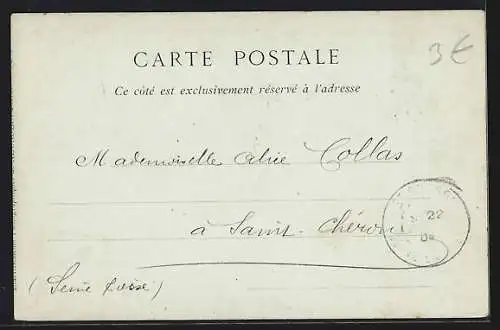 CARTE POSTALE
3€
Ce côté est exclusivement réservé à l'adresse
Mademoiselle Alice Collas
à Saint-Chéron
22
(Seine &oise)